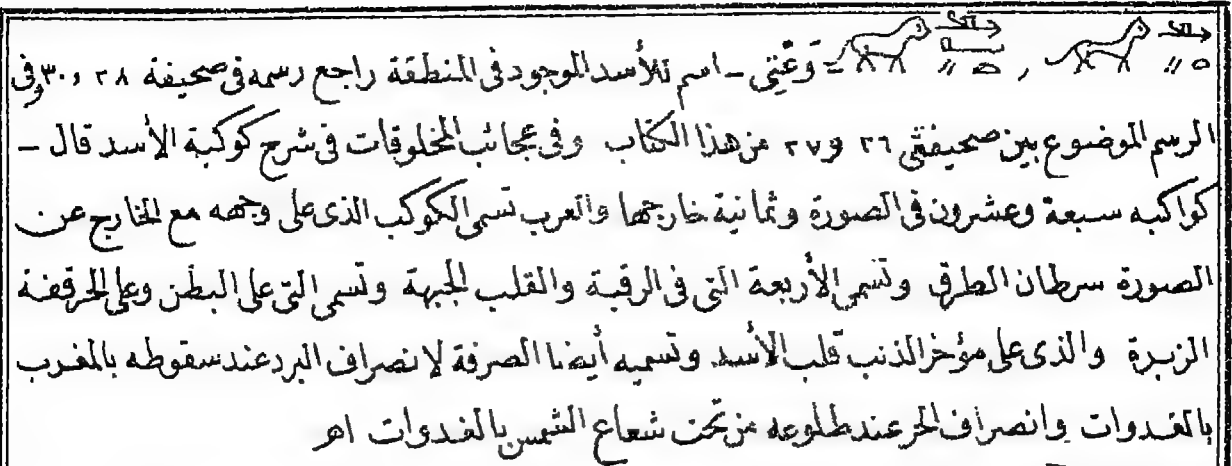 = وَعْتِى - اسم للأسد الموجود فى المنطقة راجع رسمه فى صحيفة ٢٨ و ٣٠ وفى
الرسم الموضوع بين صحيفتى ٢٦ و ٢٧ من هذا الكتاب وفى عجائب المخلوقات فى شرح كوكبة الأسد قال -
كواكبه سبعة وعشرون فى الصورة وثمانية خارجها والعرب تسمى الكوكب الذى على وجهه مع الخارج عن
الصورة سرطان الطرف وتسمى الأربعة التى فى الرقبة والقلب الجبهة وتسمى التى على البطن وعلى الحرقفة
الزبرة والذى على مؤخر الذنب قلب الأسد وتسميه أيضا الصرفة لانصراف البرد عند سقوطه بالمغرب
بالغدوات وانصراف الحر عند طلوعه من تحت شعاع الشمس بالغدوات اهـ